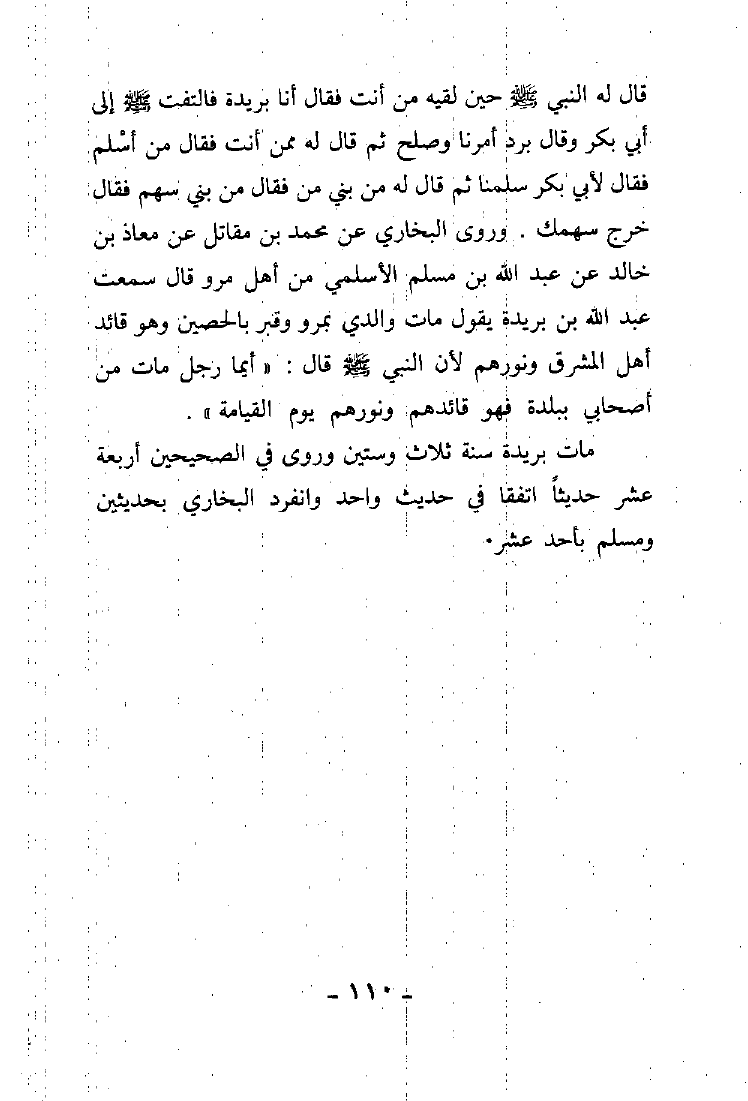 قال له النبي ﷺ حين لقيه من أنت فقال أنا بريدة فالتفت ﷺ إلى
أبي بكر وقال برد أمرنا وصلح ثم قال له ممن أنت فقال من أسْلم
فقال لأبي بكر سلمنا ثم قال له من بني من فقال من بني سهم فقال
خرج سهمك . وروى البخاري عن محمد بن مقاتل عن معاذ بن
خالد عن عبد الله بن مسلم الأسلمي من أهل مرو قال سمعت
عبد الله بن بريدة يقول مات والدي بمرو وقبر بالحصين وهو قائد
أهل المشرق ونورهم لأن النبي ﷺ قال : « أيما رجل مات من
أصحابي ببلدة فهو قائدهم ونورهم يوم القيامة » .
مات بريدة سنة ثلاث وستين وروى في الصحيحين أربعة
عشر حديثاً اتفقا في حديث واحد وانفرد البخاري بحديثين
ومسلم بأحد عشر.
- ١١٠ -